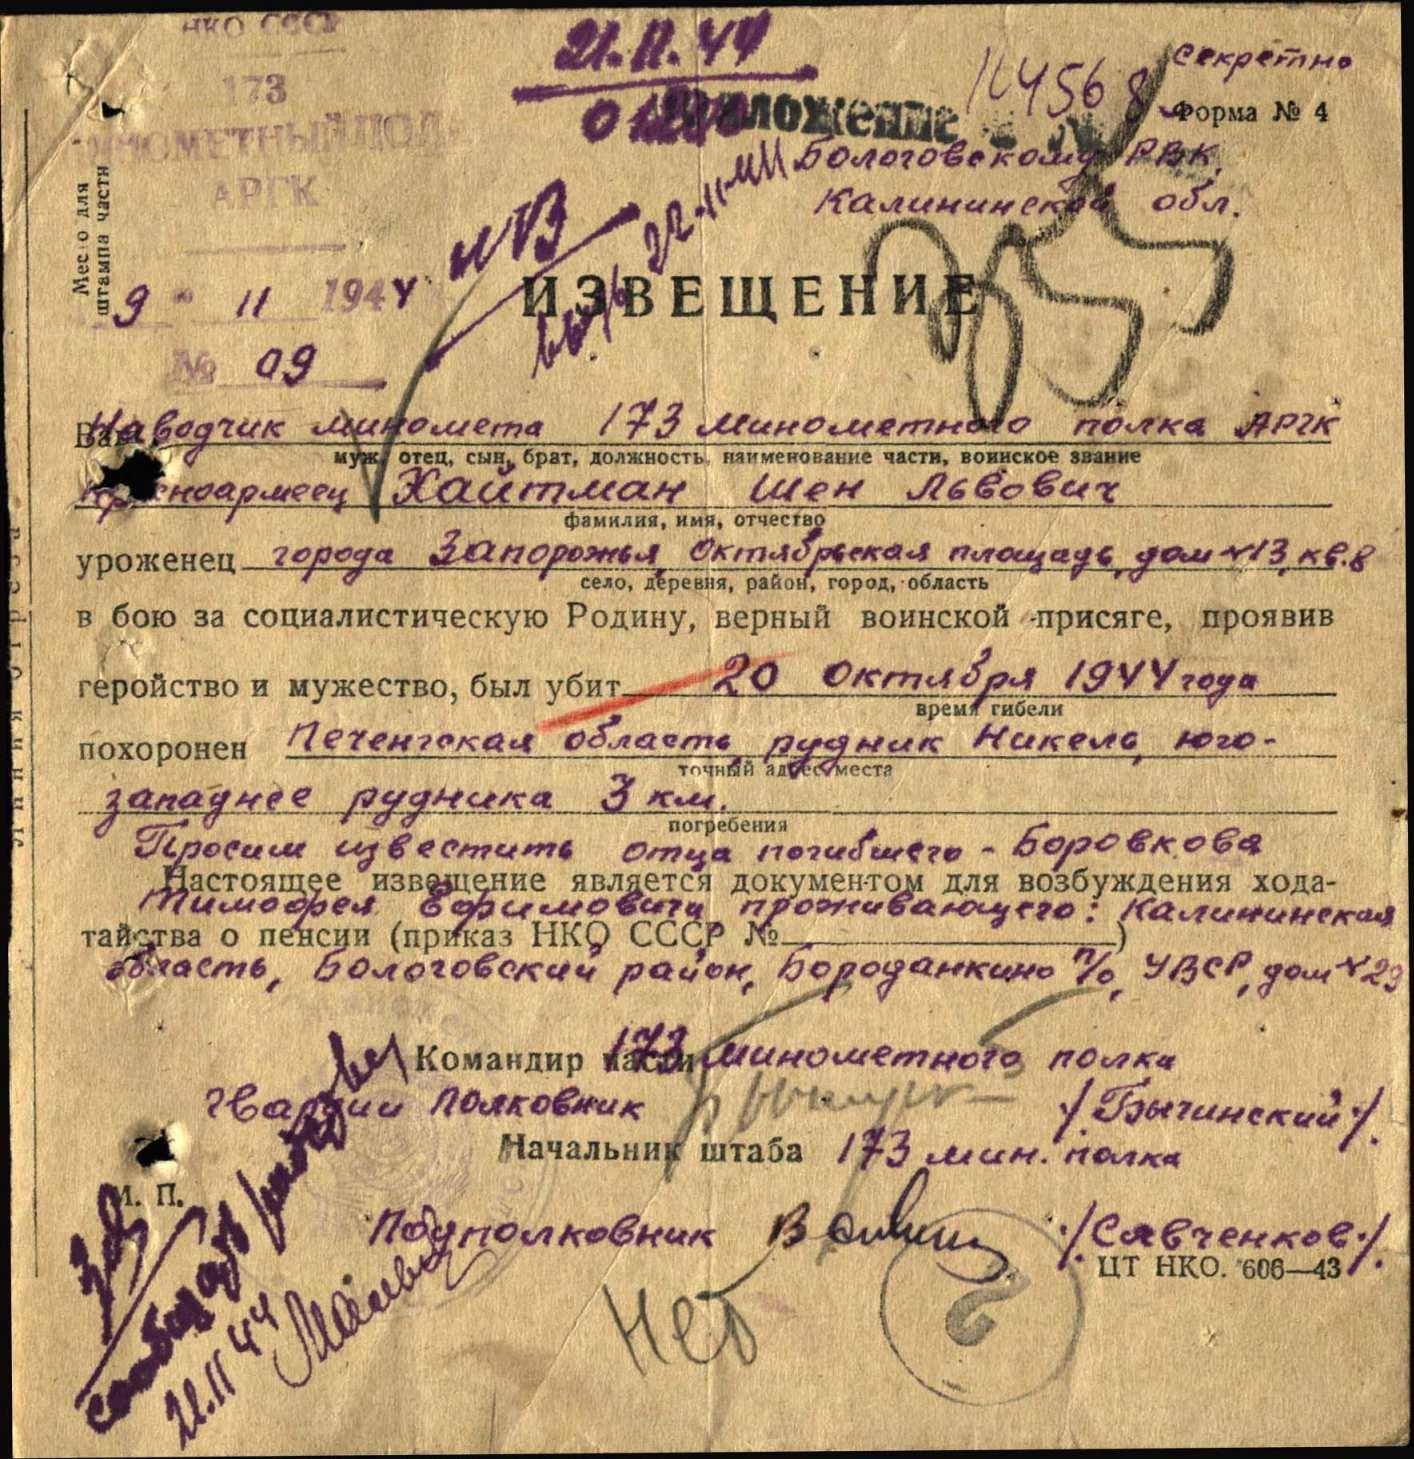 НКО СССР
173
МИНОМЕТНЫЙ ПОЛК
АРГК
Место для
штампа части
9 " 11 1944
№ 09
21.11.44
Приложение
114568
секретно
Форма № 4
Бологовскому РВК,
Калининской обл.
22-11
ИЗВЕЩЕНИЕ
Наводчик миномета 173 Минометного полка АРГК
муж, отец, сын, брат, должность, наименование части, воинское звание
красноармеец Хайтман Шен Львович
фамилия, имя, отчество
уроженец города Запорожья, Октябрьская площадь, дом №13, кв.8
село, деревня, район, город, область
в бою за социалистическую Родину, верный воинской присяге, проявив
геройство и мужество, был убит 20 Октября 1944 года
время гибели
похоронен Печенгская область, рудник Никель, юго-
точный адрес места
западнее рудника 3 км.
погребения
Просим известить отца погибшего - Боровкова
Настоящее извещение является документом для возбуждения хода-
Тимофея Ефимовича проживающего: Калининская
тайства о пенсии (приказ НКО СССР №)
область, Бологовский район, Бороданкино п/о, УВСР, дом №29
Командир части 173 минометного полка
гвардии полковник /Бычинский/.
Начальник штаба 173 мин. полка
М. П.
Подполковник /Савченков/.
ЦТ НКО. 606—43
21.11 44
Нет
2
Линия отреза